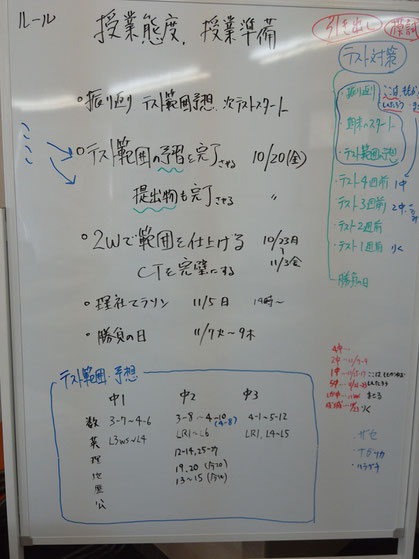 ルール
授業態度、授業準備
引き出し 模試
テスト対策
○振り返り テスト範囲予想 次テストスタート
○テスト範囲の予習を完了させる 10/20(金)
提出物も完了させる 〃
○2Wで範囲を仕上げる 10/23日
CTを完璧にする 11/3金
○理社マラソン 11/5日 19時〜
○勝負の日 11/7火〜9木
・振り返り
・期末のスタート
・テスト範囲の予想
・テスト4週前 1中
・テスト3週前 2中
・テスト2週前
・テスト1週前 りく
・勝負の日
テスト範囲・予想
中1 中2 中3
数 3-7〜4-6 3-8〜4-10 4-1〜5-12
(4-8)
英 L3ws〜L4 LR1〜L6 LR1、L4〜L5
理 12-14,25-27
地 19、20
歴 13〜15
公